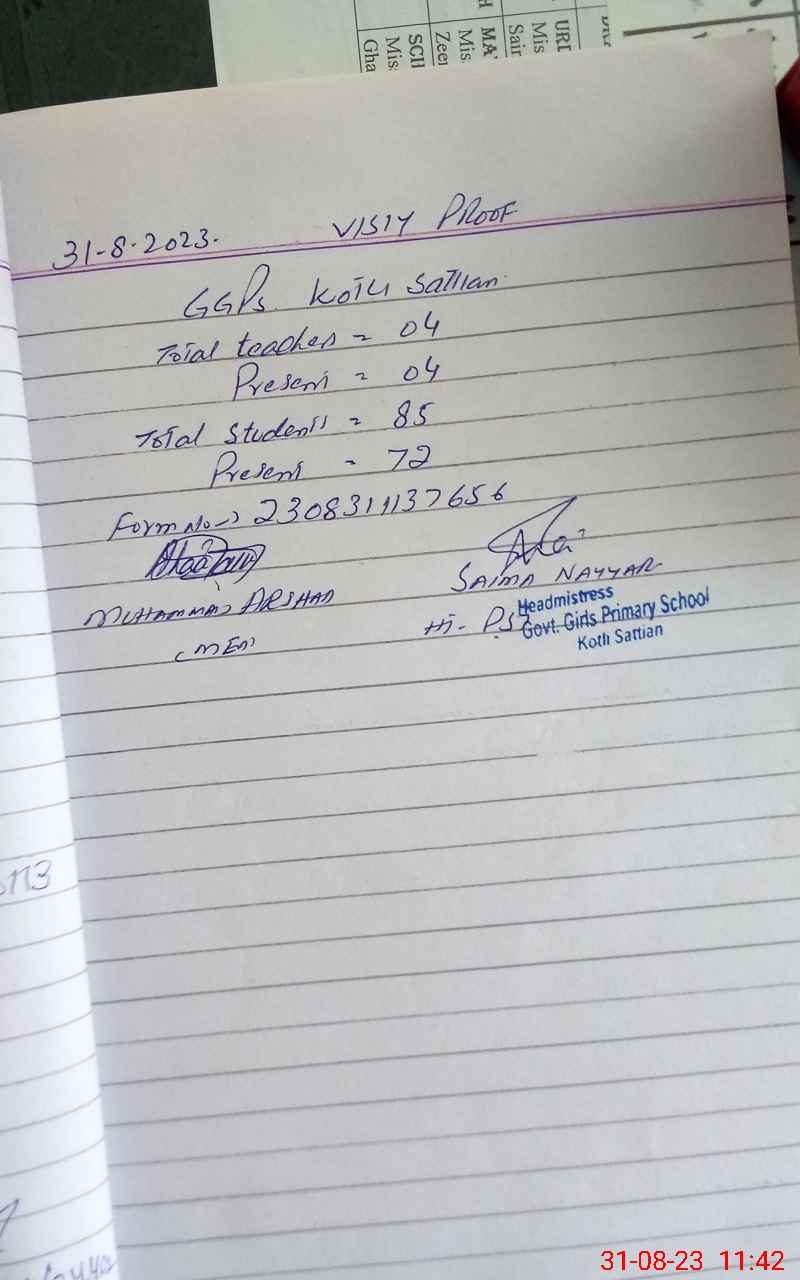 URD
Mis
Sair
MA'
Mis
Zee
SCII
Mis
Gha
31-8-2023. VISIY PROOF
GGPs Kotli Sattian
Total teacher = 04
Present = 04
Total Students = 85
Present = 72
Form No-> 2308311137656
MUHAMMAD ARSHAD
(MEA)
SAIMA NAYYAR
Headmistress
Govt. Girls Primary School
Kotli Sattian
31-08-23 11:42